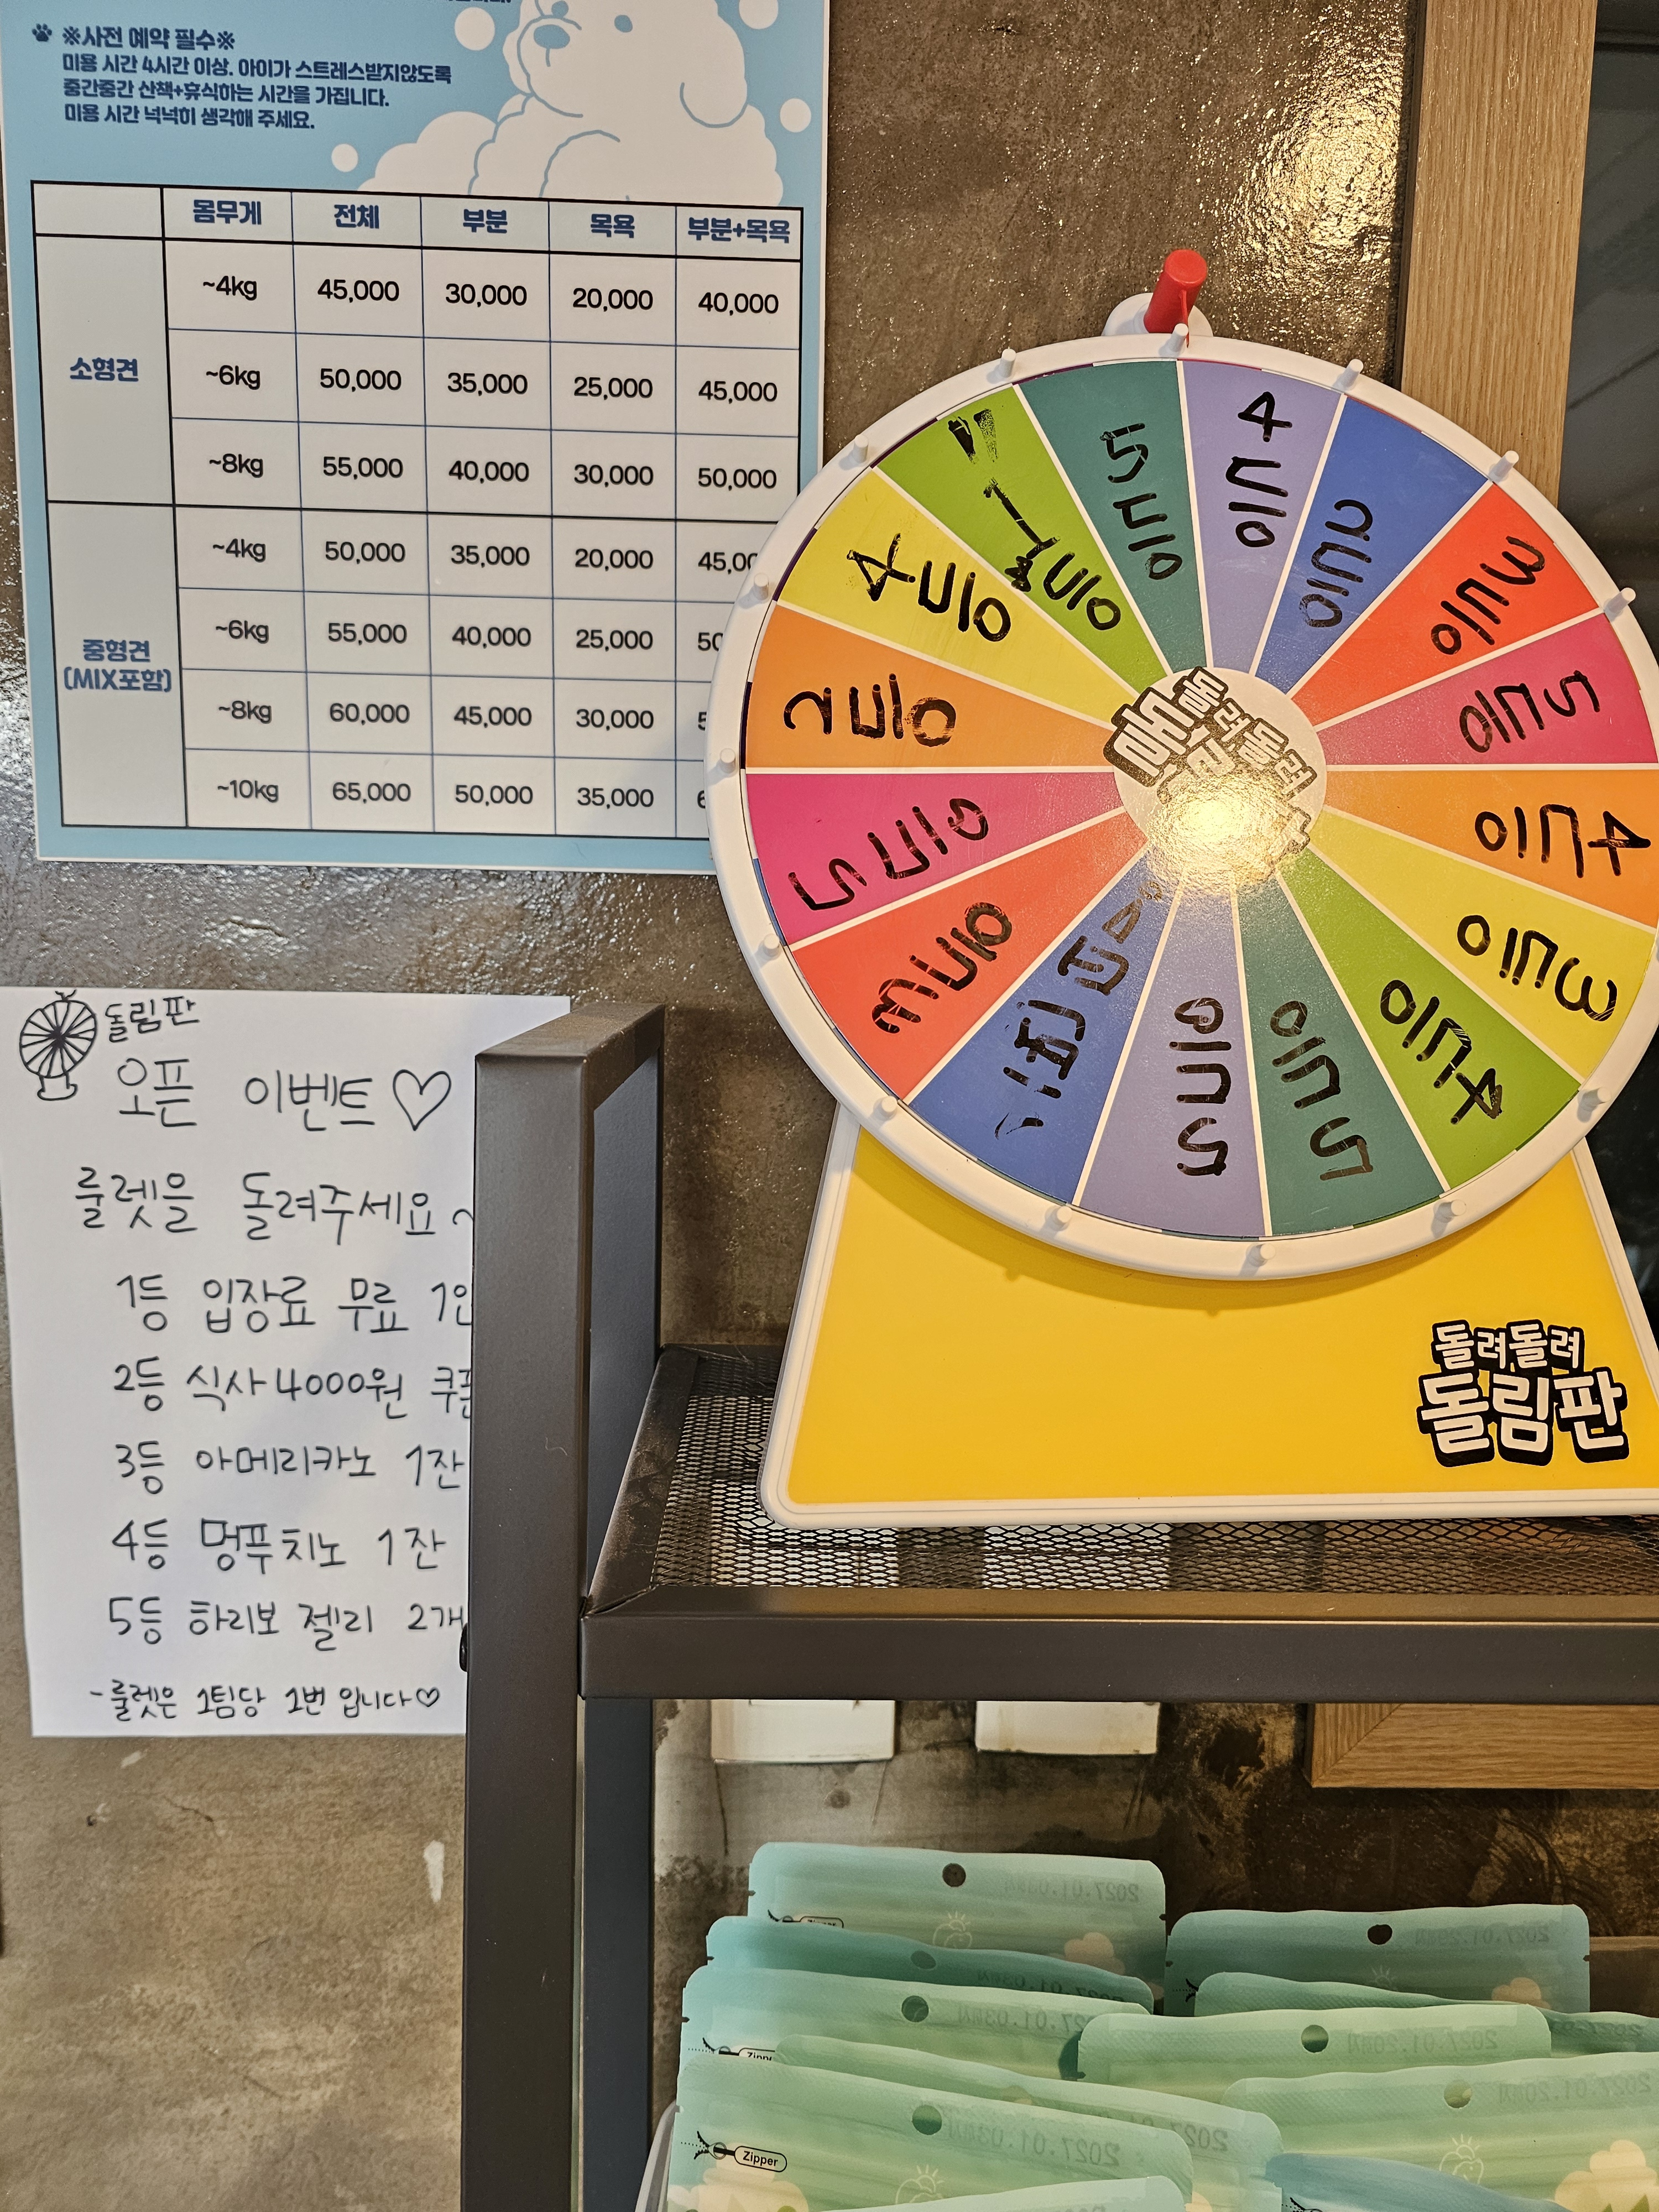 ※사전 예약 필수※
미용 시간 4시간 이상. 아이가 스트레스받지않도록
중간중간 산책+휴식하는 시간을 가집니다.
미용 시간 넉넉히 생각해 주세요.
몸무게 전체 부분 목욕 부분+목욕
소형견
~4kg 45,000 30,000 20,000 40,000
~6kg 50,000 35,000 25,000 45,000
~8kg 55,000 40,000 30,000 50,000
중형견
(MIX포함)
~4kg 50,000 35,000 20,000
~6kg 55,000 40,000 25,000
~8kg 60,000 45,000 30,000
~10kg 65,000 50,000 35,000
4등
2등
3등
5등
4등
3등
4등
5등
5등
3등
5등
2등
4등
1등
5등
돌려돌려
돌림판
돌려돌려
돌림판
돌림판
오픈 이벤트♡
룰렛을 돌려주세요~
1등 입장료 무료
2등 식사 4000원 쿠폰
3등 아메리카노 1잔
4등 멍푸치노 1잔
5등 하리보 젤리 2개
-룰렛은 1팀당 1번 입니다♡
2027.01.03까지
2027.01.29까지
2027.01.20까지
2027.01.20까지
2027.01.03까지
Zipper